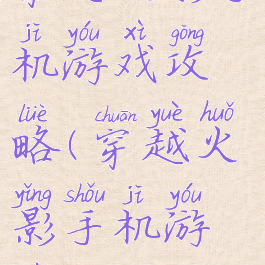 jī yóu xì gōng
机游戏攻
lüè chuān yuè huǒ
略(穿越火
yǐng shǒu jī yóu
影手机游